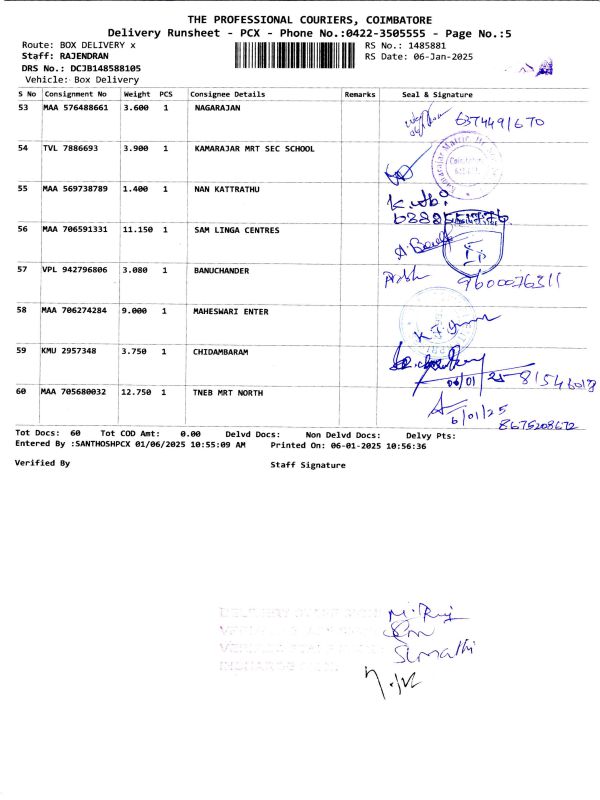 THE PROFESSIONAL COURIERS, COIMBATORE
Delivery Runsheet - PCX - Phone No.:0422-3505555 - Page No.:5
Route: BOX DELIVERY x RS No.: 1485881
Staff: RAJENDRAN RS Date: 06-Jan-2025
DRS No.: DCJB148588105
Vehicle: Box Delivery
S No Consignment No Weight PCS Consignee Details Remarks Seal & Signature
53 MAA 576488661 3.600 1 NAGARAJAN
6374491670
54 TVL 7886693 3.900 1 KAMARAJAR MRT SEC SCHOOL
55 MAA 569738789 1.400 1 NAN KATTRATHU
56 MAA 706591331 11.150 1 SAM LINGA CENTRES
57 VPL 942796806 3.080 1 BANUCHANDER
9600076311
58 MAA 706274284 9.000 1 MAHESWARI ENTER
59 KMU 2957348 3.750 1 CHIDAMBARAM
06/01/25
60 MAA 705680032 12.750 1 TNEB MRT NORTH
6/01/25
8675208672
Tot Docs: 60 Tot COD Amt: 0.00 Delvd Docs: Non Delvd Docs: Delvy Pts:
Entered By :SANTHOSHPCX 01/06/2025 10:55:09 AM Printed On: 06-01-2025 10:56:36
Verified By Staff Signature